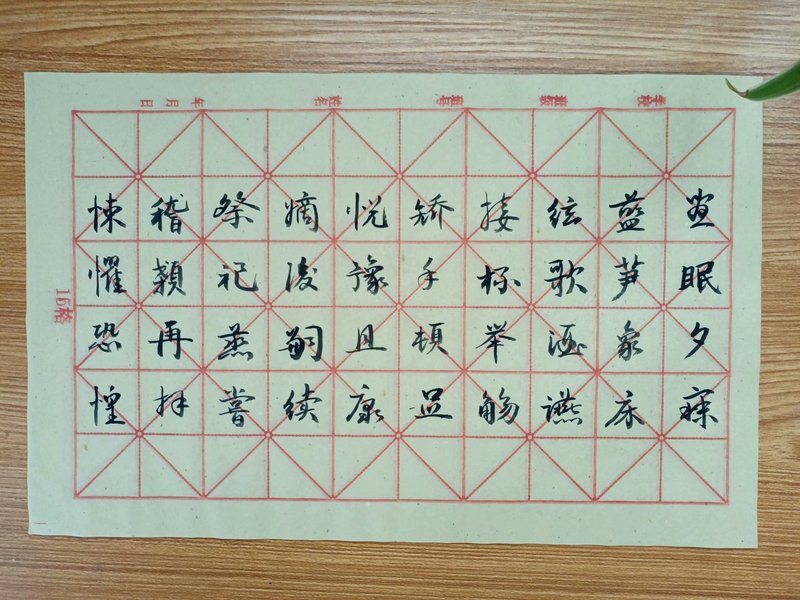 昼眠夕寐
蓝笋象床
絃歌酒讌
接杯举觞
矫手頓足
悦豫且康
嫡後嗣续
祭祀蒸嘗
稽顙再拜
悚懼恐惶
学校 班级 姓名 年 月 日
15格